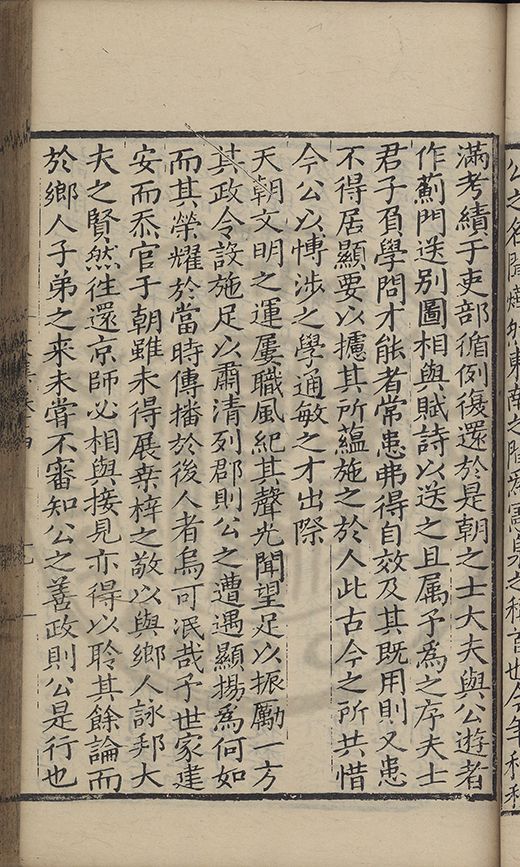 滿考績于吏部循例復還於是朝之士大夫與公遊者
作薊門送別圖相與賦詩以送之且属予爲之序夫士
君子負學問才能者常患弗得自效及其既用則又患
不得居顯要以攄其所蘊施之於人此古今之所共惜
今公以愽涉之學通敏之才出際
天朝文明之運屢職風紀其聲光聞望足以振勵一方
其政令設施足以肅清列郡則公之遭遇顯揚爲何如
而其榮耀於當時傳播於後人者烏可泯哉予世家建
安而忝官于朝雖未得展桒梓之敬以與鄉人詠邦大
夫之賢然徃還京師必相與接見亦得以聆其餘論而
於鄉人子弟之来未嘗不審知公之善政則公是行也